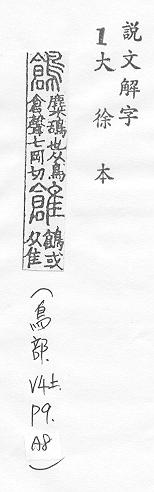 説文解字
1大徐本
鶬 麋鴰也从鳥
倉聲七岡切 䧂 鶬或
从隹
(鳥部.
V4上.
P9.
A8)